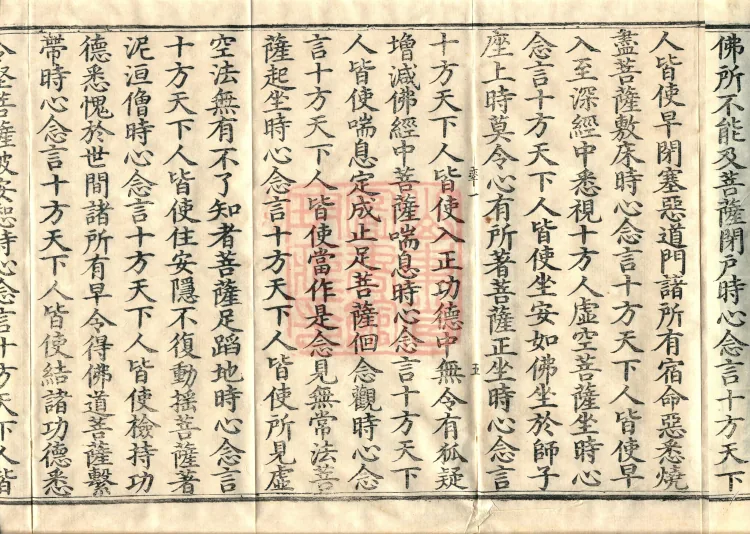 佛所不能及菩薩閉戶時心念言十方天下
人皆使早閉塞惡道門諸所有宿命惡悉燒
盡菩薩敷床時心念言十方天下人皆使早
入至深經中悉視十方人虛空菩薩坐時心
念言十方天下人皆使坐安如佛坐於師子
座上時莫令心有所著菩薩正坐時心念言
十方天下人皆使入正功德中無令有狐疑
增減佛經中菩薩喘息時心念言十方天下
人皆使喘息定成止足菩薩徊念觀時心念
言十方天下人皆使當作是念見無常法菩
薩起坐時心念言十方天下人皆使所見虛
空法無有不了知者菩薩足蹈地時心念言
十方天下人皆使住安隱不復動搖菩薩著
泥洹僧時心念言十方天下人皆使檢持功
德悉愧於世間諸所有早令得佛道菩薩繫
帶時心念言十方天下人皆使結諸功德悉
令堅菩薩被安恕時心念言十方天下人皆